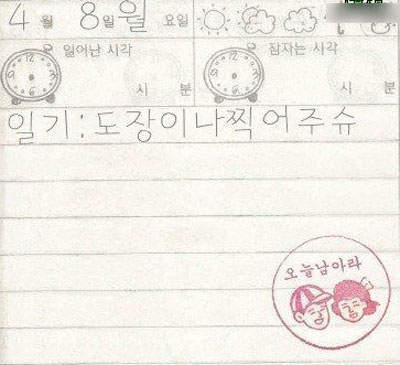 4 월 8 일 월 요일
일어난 시각 잠자는 시각
시 분 시 분
일기:도장이나찍어주슈
오늘남아라